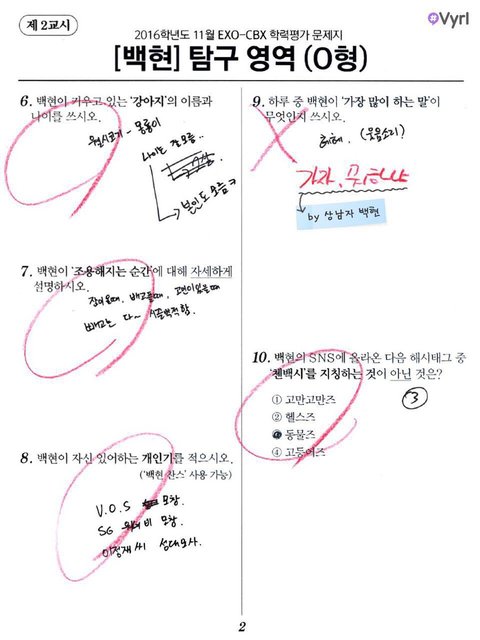 제 2교시
Vyrl
2016학년도 11월 EXO-CBX 학력평가 문제지
[백현] 탐구 영역 (O형)
6. 백현이 키우고 있는 '강아지'의 이름과
나이를 쓰시오.
웰시코기 - 몽룡이
나이는 잘 모름..
본인도 모름 ㅋ
7. 백현이 '조용해지는 순간'에 대해 자세하게
설명하시오.
잠이 올때, 배고플때, 고민이 있을때
빼고는 다~ 시끌벅적함.
8. 백현이 자신 있어하는 개인기를 적으시오.
('백현 찬스' 사용 가능)
V.O.S 모창
SG 워너비 모창.
이정재씨 성대모사.
9. 하루 중 백현이 '가장 많이 하는 말'이
무엇인지 쓰시오.
(웃음소리?)
가자,
by 상남자 백현
10. 백현의 SNS에 올라온 다음 해시태그 중
'첸백시'를 지칭하는 것이 아닌 것은?
① 고만고만즈
② 헬스즈
③ 동물즈
④ 고등어즈
③
2